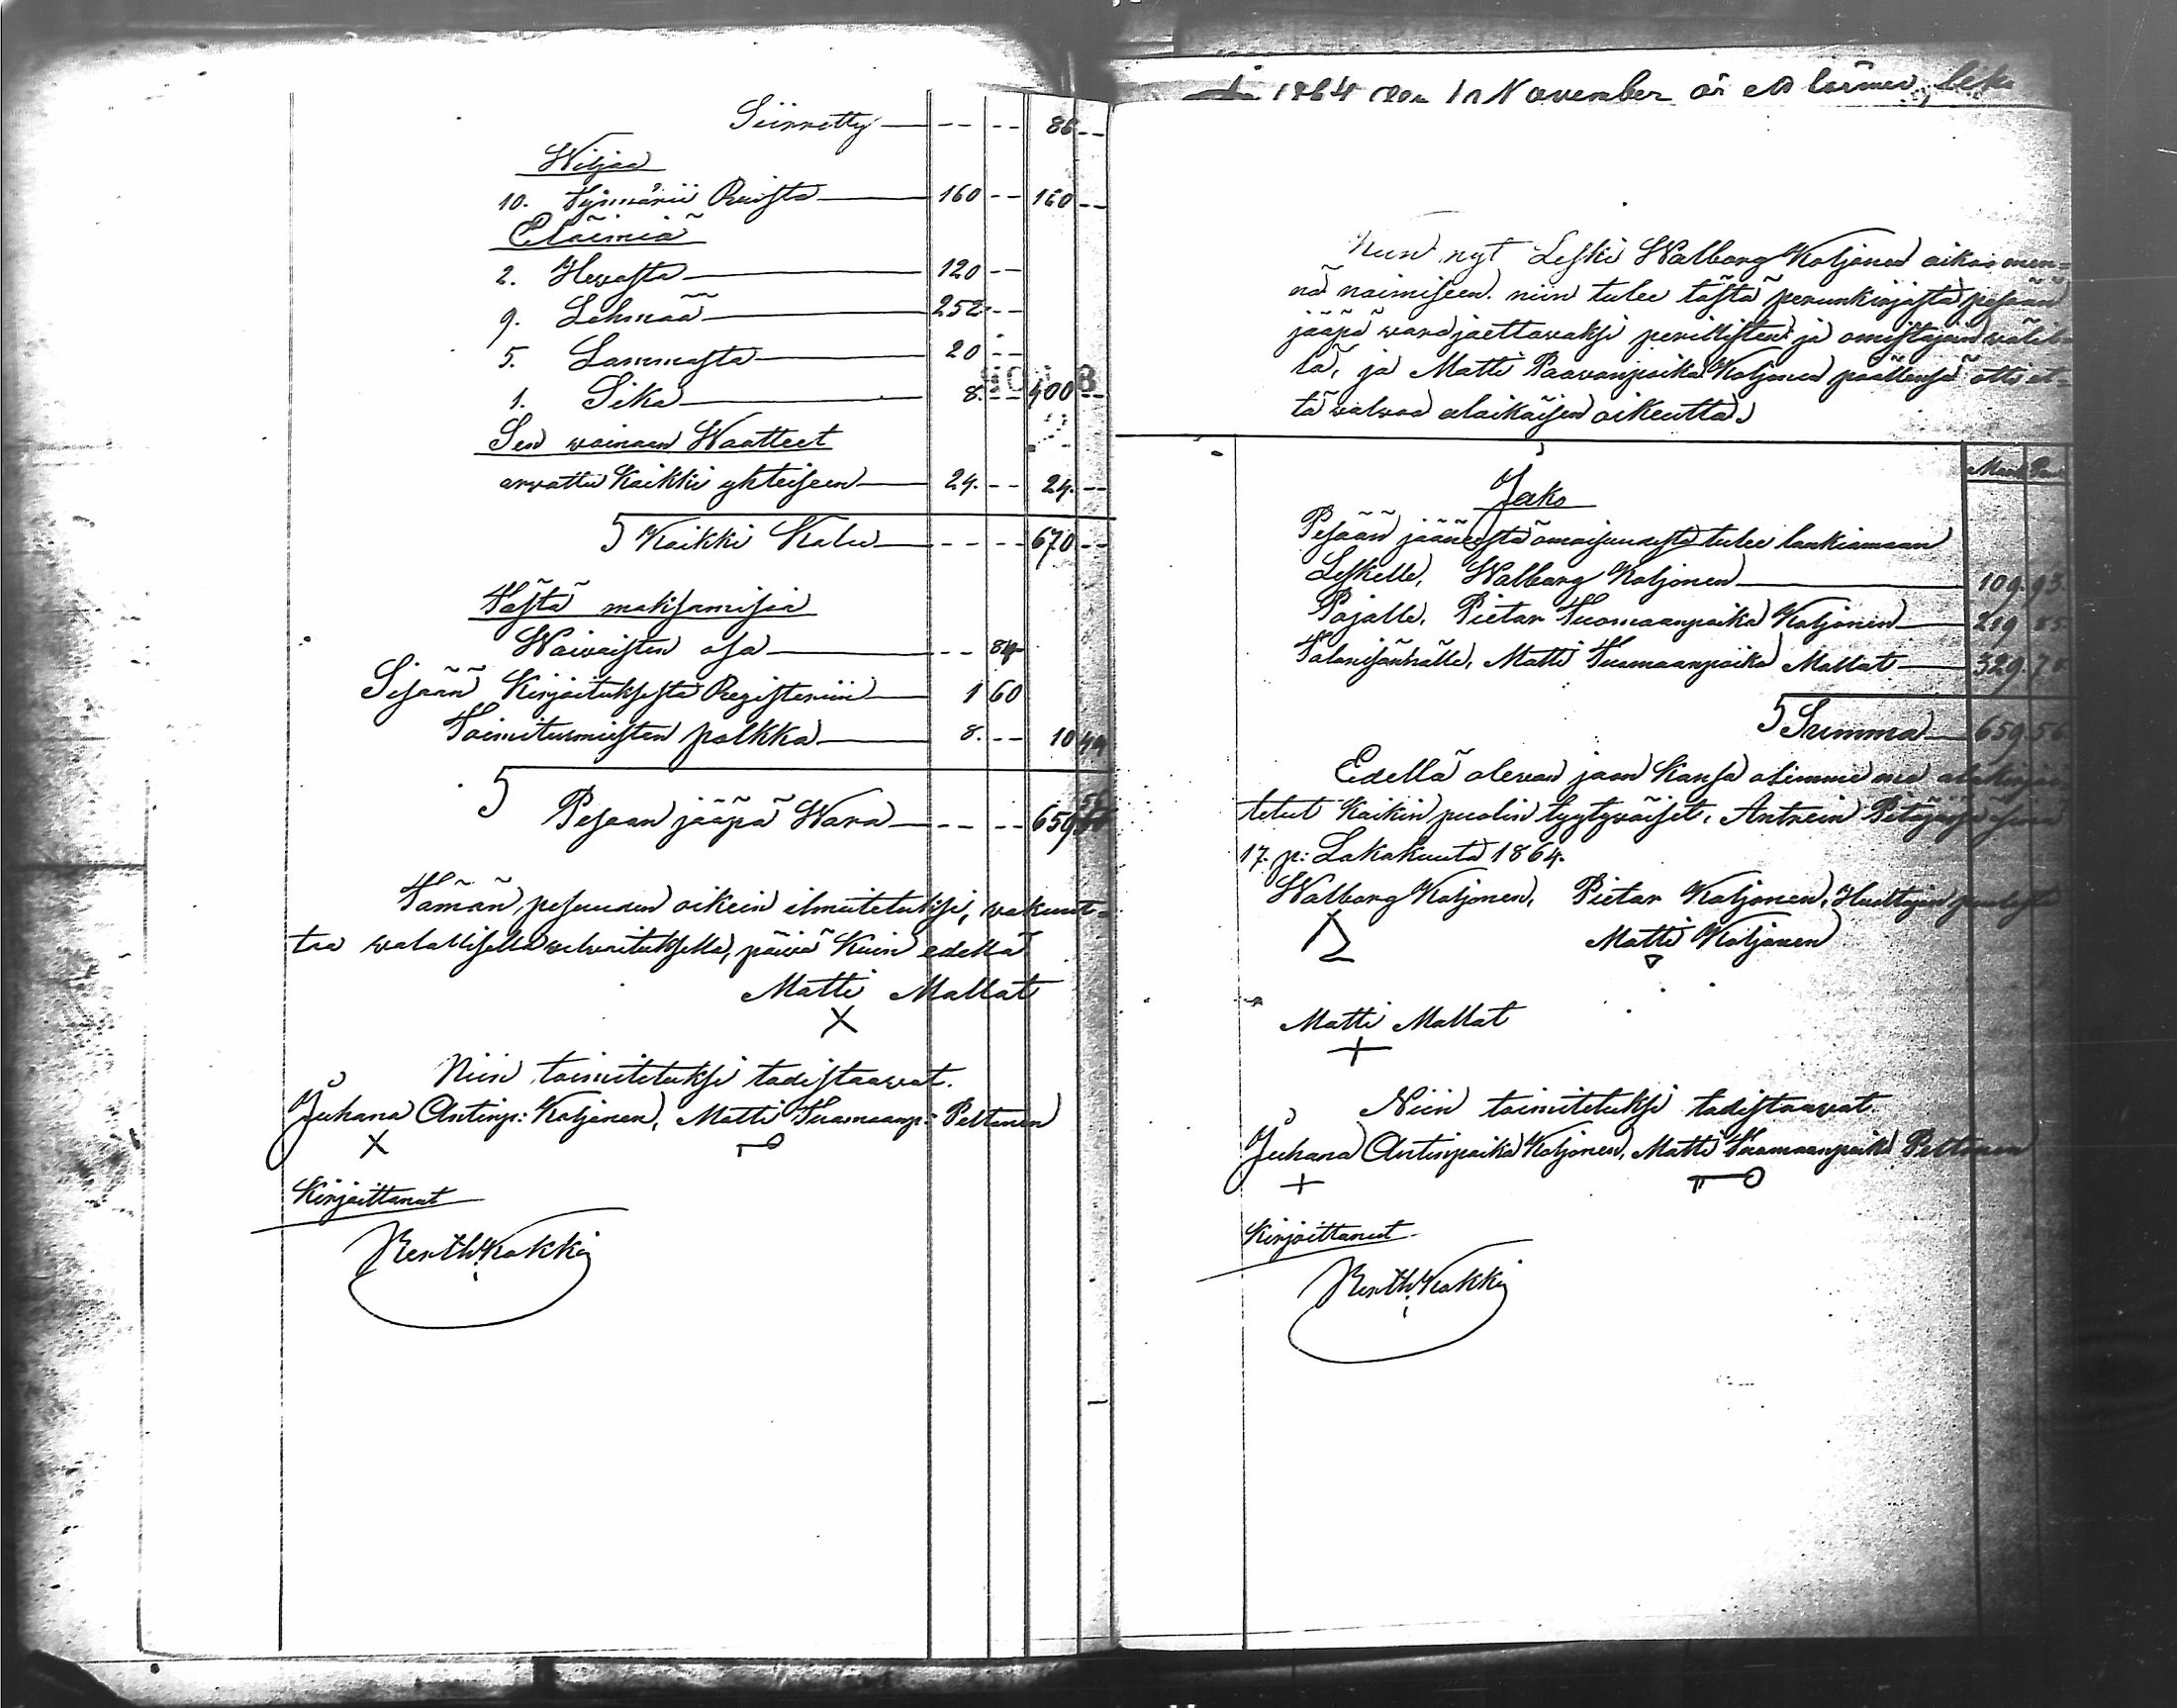 Siirretty — -- -- 86 --
Wiljaa
10. Tynnöriä Ruista — 160 -- 160 --
Eläimiä
2. Hevosta — 120 --
9. Lehmää — 252 --
5. Lammasta — 20 --
1. Sika — 8. -- 400 --
Sen wainaan Waatteet
arvattu Kaikki yhteiseen — 24. -- 24. --
Kaikki Kalu — -- -- 670 --
Tästä maksamisia
Waivaisten osa — -- 84
Sisään Kirjoituksesta Registeriin — 1 60
Toimitusmiesten palkka — 8. -- 10 44
Pesään jääpä Wara — -- -- 659 56
Tämän pesuuden oikein ilmoitetuksi, wakuut=
taa walallisella velvoituksella, päivä Kuin edellä
Matti Mallat
X
Niin toimitetuksi todistaavat.
Juhana Antinp: Koljonen, Matti Tuomaanp: Peltonen
X
Kirjoittanut
1864 den 1 November är
Kun nyt Leski Walborg Koljonen aikoo men=
nä naimiseen. niin tulee tästä perunkirjasta pesään
jääpä wara jaettavaksi perillisten ja omistajain välil=
lä, ja Matti Paavonpoika Koljonen päällensä otti et=
tä walvoa alaikäisen oikeutta
Jako
Pesään jääneestä omaisuudesta tulee lankiamaan
Leskelle, Walborg Koljonen — 109. 93
Pojalle, Pietar Tuomaanpoika Koljonen — 219 85
Talonisännälle, Matti Tuomaanpoika Mallat — 329. 78
Summa — 659 56
Edellä olevan jaon Kansa olimme me alakirjoi
tetut Kaikin puolin tyytyväiset, Antrein Pitäjässä
17. p: Lokakuuta 1864.
Walborg Koljonen, Pietar Koljonen, Holttajan puolesta
Matti Koljonen
Matti Mallat
+
Niin toimitetuksi todistaavat
Juhana Antinpoika Koljonen, Matti Tuomaanpoika Peltonen
+
Kirjoittanut